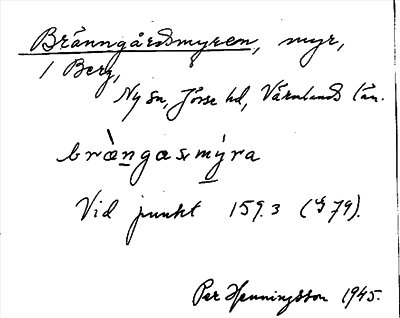 Brånngårdsmyren, myr,
i Berg,
Ny sn, Jösse hd, Värmlands län.
bràngasmýra
Vid punkt 159.3 (79).
Per Henningsson 1945.